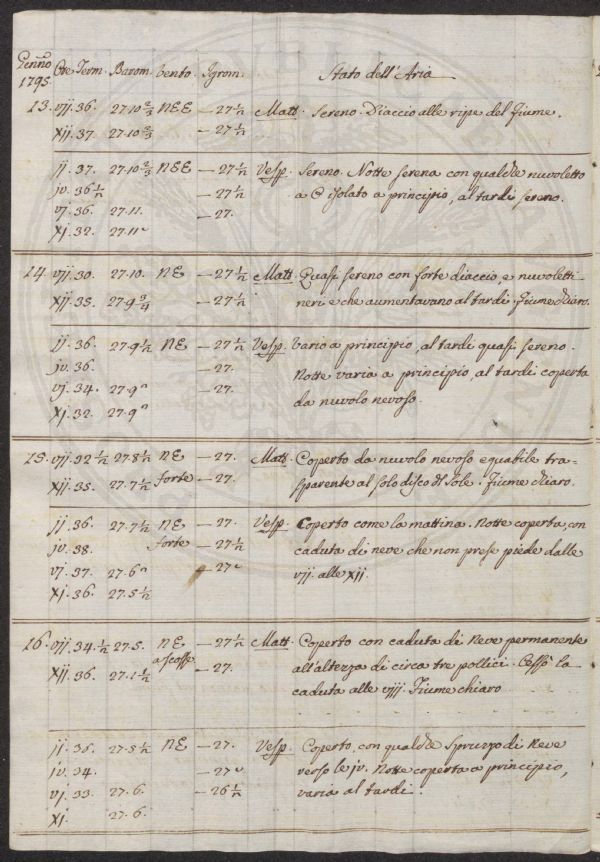 Genno
1795. Ore Term. Barom. Vento. Igrom. Stato dell'Aria
13. vij. 36. 27.10 2/3 NEE — 27 1/2 Matt. Sereno. Diaccio alle ripe del Fiume.
xij. 37. 27.10 2/3 — 27 1/2
ij. 37. 27.10 2/3 NEE — 27 1/2 Vesp. Sereno. Notte serena con qualche nuvoletto
iv. 36 1/2 — 27 1/2 a isolato a principio, al tardi sereno.
vj. 36. 27.11. — 27.
xj. 32. 27.11
14. vij. 30. 27.10. NE — 27 1/2 Matt. Quasi sereno con forte diaccio, e nuvoletti
xij. 35. 27.9 3/4 — 27 1/2 neri e che aumentavano al tardi. Fiume chiaro.
ij. 36. 27.9 1/2 NE — 27 1/2 Vesp. Vario a principio, al tardi quasi sereno.
iv. 36. — 27. Notte varia a principio, al tardi coperta
vj. 34. 27.9 — 27. da nuvolo nevoso.
xj. 32. 27.9
15. vij. 32 1/2 27.8 1/2 NE — 27. Matt. Coperto da nuvolo nevoso equabile tra-
xij. 35. 27.7 1/2 forte — 27. sparente al solo disco del Sole. Fiume chiaro.
ij. 36. 27.7 1/2 NE — 27. Vesp. Coperto come la mattina. Notte coperta, con
iv. 38. forte — 27 1/2 caduta di neve che non prese piede dalle
vj. 37. 27.6 — 27 vij. alle xij.
xj. 36. 27.5 1/2
16. vij. 34. 1/2 27.5. NE — 27 1/2 Matt. Coperto con caduta di Neve permanente
xij. 36. 27.1 1/2 a scosse — 27. all'altezza di circa tre pollici. Cessò la
caduta alle viij. Fiume chiaro
ij. 36. 27.5 1/2 NE — 27. Vesp. Coperto, con qualche spruzzo di Neve
iv. 34. — 27 verso le iv. Notte coperta a principio,
vj. 33. 27.6. — 26 1/2 varia al tardi.
xj. 27.6.